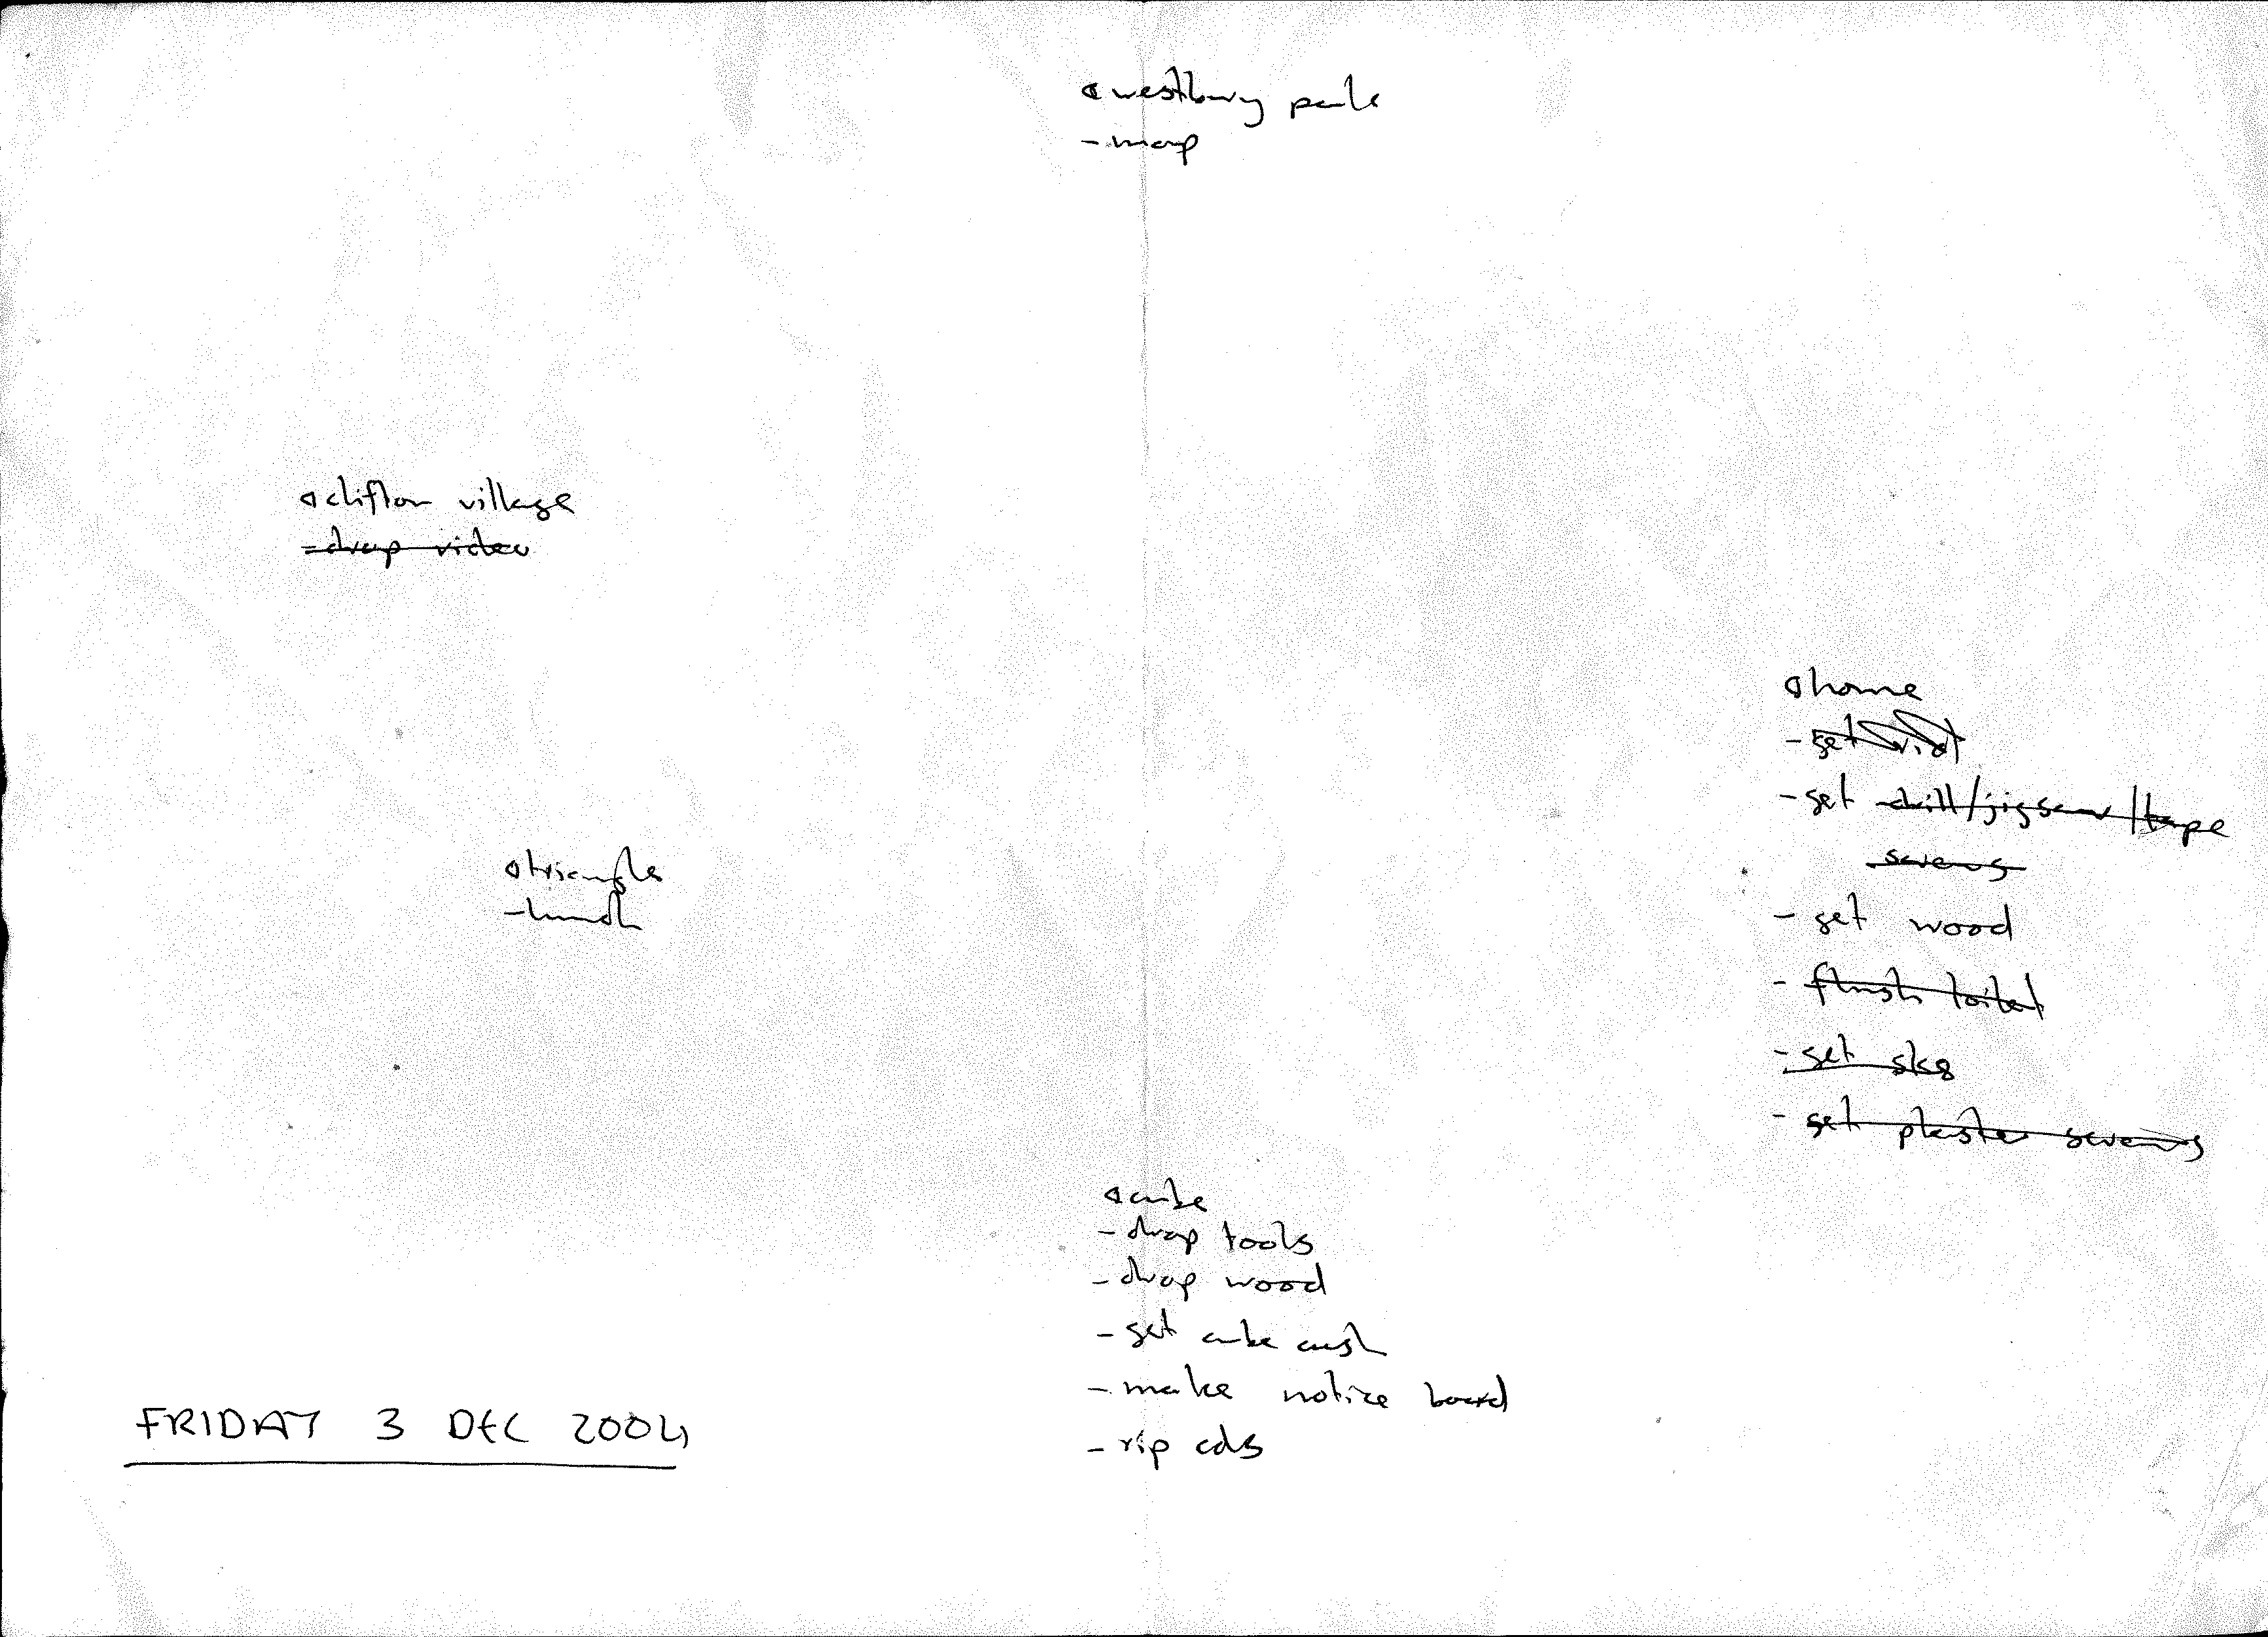 westbury park
- map
clifton village
- drop video
home
- get vid
- get drill/jigsaw/tape
screws
triangle
- lunch
- get wood
- flush toilet
- get sk8
- get plaster screws
cube
- drop tools
- drop wood
- get cube cash
- make notice board
- rip cds
FRIDAY 3 DEC 2004